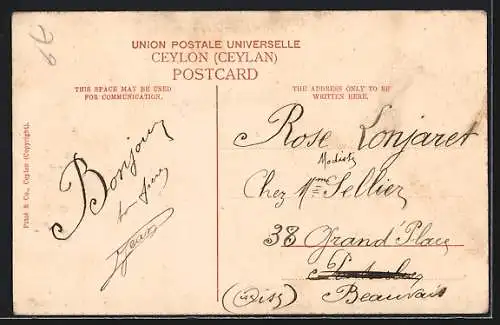 UNION POSTALE UNIVERSELLE
CEYLON (CEYLAN)
POSTCARD
THIS SPACE MAY BE USED
FOR COMMUNICATION.
THE ADDRESS ONLY TO BE
WRITTEN HERE.
Platé & Co., Ceylon (Copyright).
Bonjour
ton frere
Jean
Rose Lonjaret
Modiste
Chez Mme Sellier
38 Grand' Place
Beauvais
(Oise)